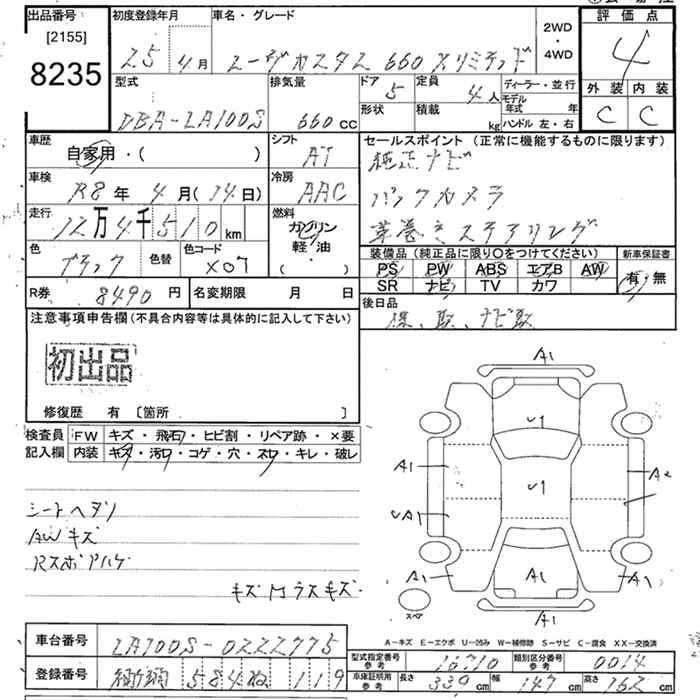 出品番号
[2155]
8235
初度登録年月
25年4月
車名・グレード
ムーヴカスタム 660 Xリミテッド
2WD
・
4WD
評価点
4
外装 内装
C C
型式
DBA-LA100S
排気量
660 CC
ドア
5
定員
4人
形状
積載
kg
ディーラー・並行
モデル年式 年
ハンドル 左・右
車歴
自家用・( )
シフト
AT
車検
R8年4月(14日)
冷房
AAC
走行
12万4千510km
燃料
ガソリン
軽・油
・( )
色
ブラック
色替
色コード
X07
R券
8490円
名変期限 月 日
セールスポイント (正常に機能するものに限ります)
純正ナビ
バックカメラ
革巻きステアリング
装備品 (純正品に限り○をつけてください)
PS PW ABS エアB AW
SR ナビ TV カワ
新車保証書
有・無
後日品
保、取、ナビ取
注意事項申告欄 (不具合内容等は具体的に記入して下さい)
初出品
修復歴 有 [箇所 ]
検査員 記入欄
FW キズ・飛石・ヒビ割・リペア跡・×要
内装 キズ・汚れ・コゲ・穴・スレ・キレ・破レ
シートヘタリ
AWキズ
Rスポアハゲ
A1
U1
A1
U1
A2
UA1
A1
A1
A1
A1
スペア
A-キズ E-エクボ U-凹み W-補修跡 S-サビ C-腐食 XX-交換済
車台番号
LA100S-0222775
登録番号
584 ね 119
型式指定番号 参考
16710
類別区分番号 参考
0014
車庫証明用 参考
長さ 339cm
幅 147cm
高さ 162cm